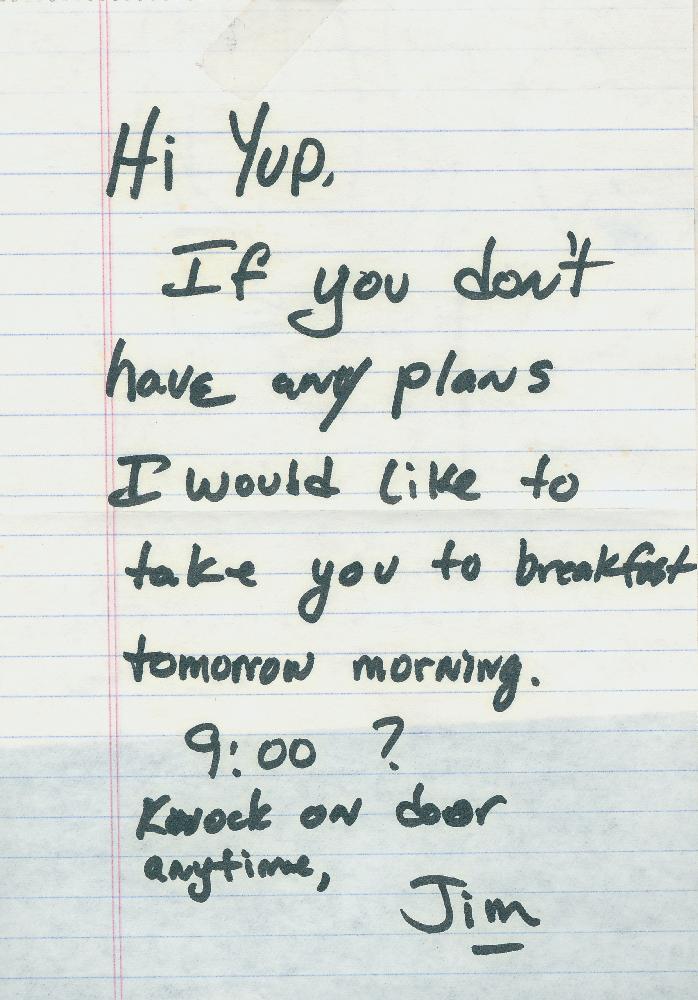 Hi Yup,
If you don't
have any plans
I would like to
take you to breakfast
tomorrow morning.
9:00 ?
Knock on door
anytime,
Jim